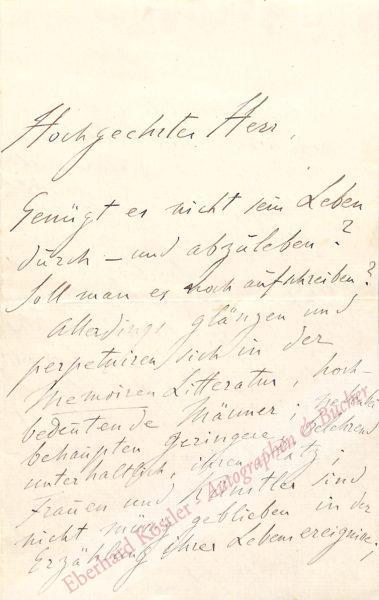 Hochgeehrter Herr,
Genügt es nicht sein Leben
durch- und abzuleben?
Soll man es noch aufschreiben?
Allerdings glänzen und
perpetuiren sich in der
Memoiren Litteratur, hoch-
bedeutende Männer;
behaupten geringere, belehrend
unterhaltlich, ihren Sitz;
Frauen und Künstler sind
nicht müde geblieben in der
Erzählung ihrer Lebensereignisse;
Eberhard Köstler · Autographen & Bücher